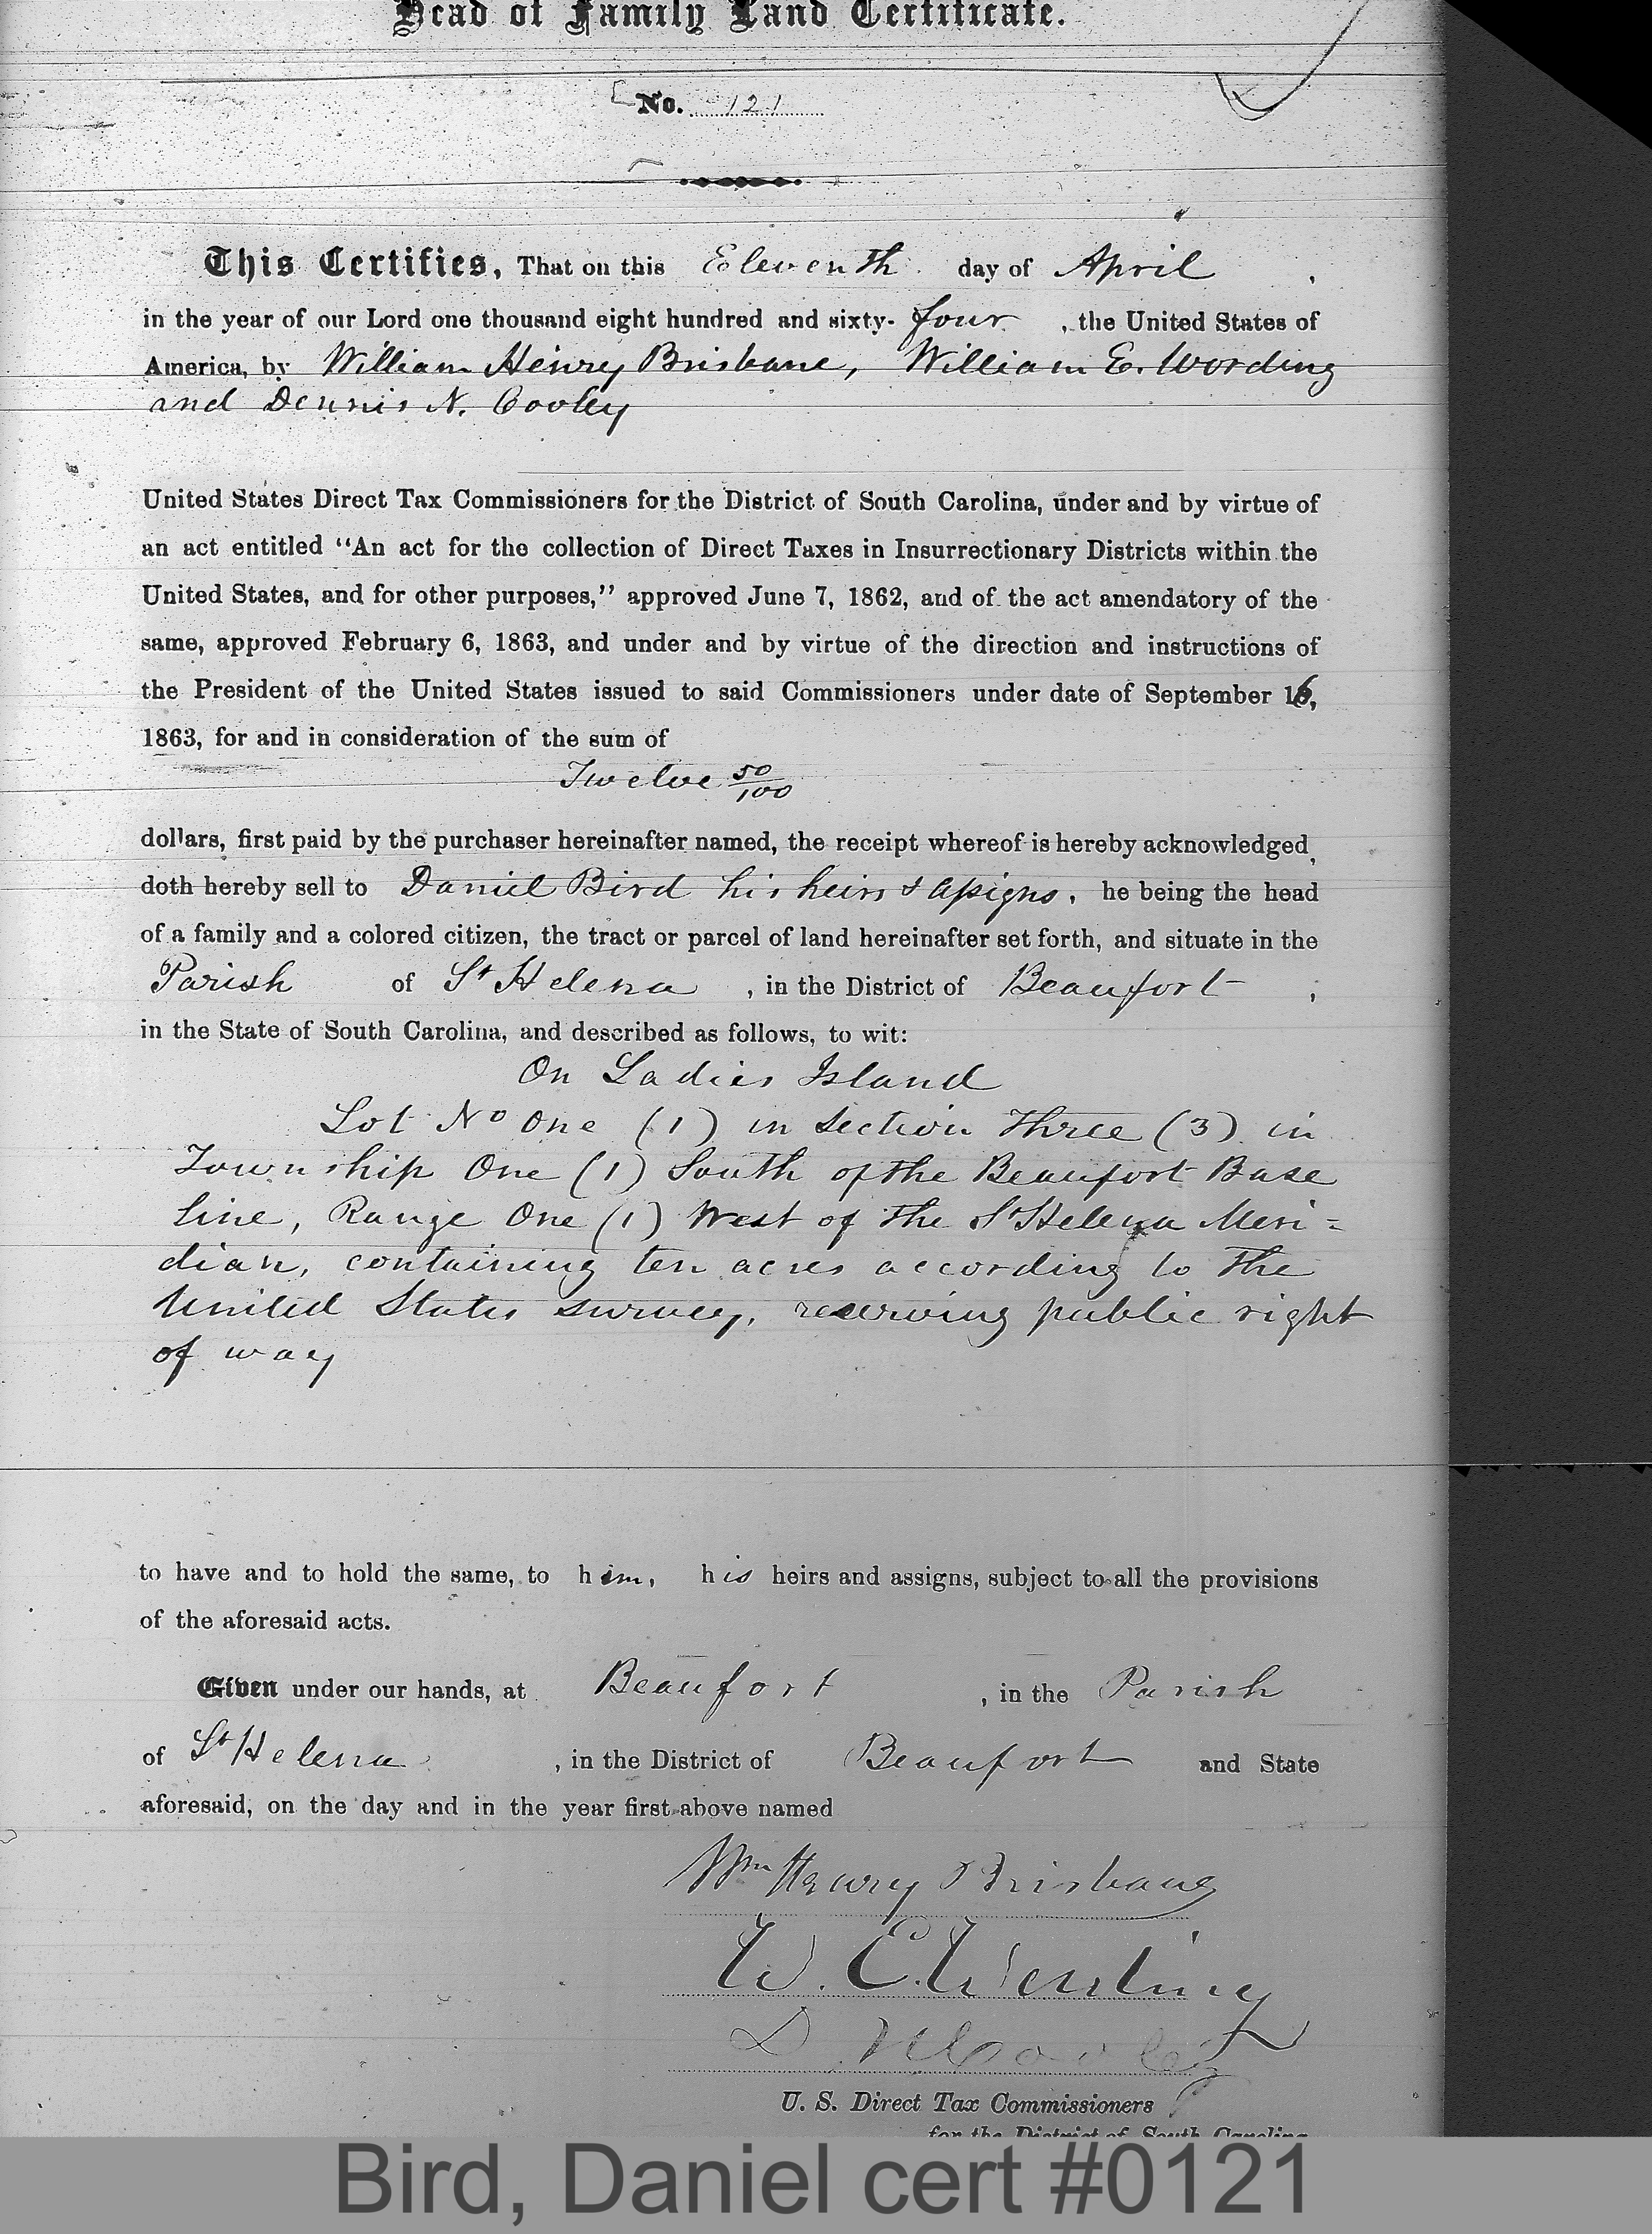 Head of Family Land Certificate.
No. 121
This Certifies, That on this Eleventh day of April,
in the year of our Lord one thousand eight hundred and sixty-four, the United States of
America, by William Henry Brisbane, William E. Wording
and Dennis N. Cooley
United States Direct Tax Commissioners for the District of South Carolina, under and by virtue of
an act entitled “An act for the collection of Direct Taxes in Insurrectionary Districts within the
United States, and for other purposes,” approved June 7, 1862, and of the act amendatory of the
same, approved February 6, 1863, and under and by virtue of the direction and instructions of
the President of the United States issued to said Commissioners under date of September 16,
1863, for and in consideration of the sum of
Twelve 50/100
dollars, first paid by the purchaser hereinafter named, the receipt whereof is hereby acknowledged,
doth hereby sell to Daniel Bird his heirs & assigns, he being the head
of a family and a colored citizen, the tract or parcel of land hereinafter set forth, and situate in the
Parish of St Helena, in the District of Beaufort,
in the State of South Carolina, and described as follows, to wit:
On Ladies Island
Lot No One (1) in Section Three (3) in
Township One (1) South of the Beaufort Base
line, Range One (1) West of the St Helena Meri=
dian, containing ten acres according to the
United States survey, reserving public right
of way
to have and to hold the same, to him, his heirs and assigns, subject to all the provisions
of the aforesaid acts.
Given under our hands, at Beaufort, in the Parish
of St Helena, in the District of Beaufort and State
aforesaid, on the day and in the year first above named
Wm Henry Brisbane
W. E. Wording
D. N. Cooley
U. S. Direct Tax Commissioners
for the District of South Carolina
Bird, Daniel cert #0121